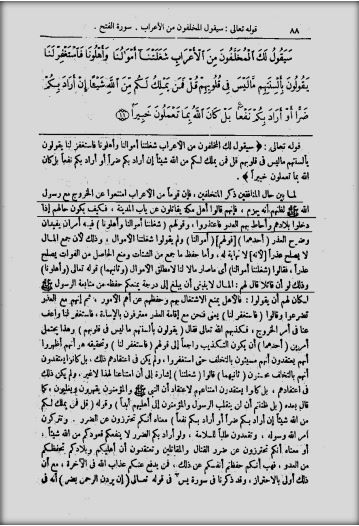 ٨٨ قوله تعالى : سيقول المخلفون من الأعراب . سورة الفتح .
سَيَقُولُ لَكَ الْمُخَلَّفُونَ مِنَ الْأَعْرَابِ شَغَلَتْنَا أَمْوَالُنَا وَأَهْلُونَا فَاسْتَغْفِرْ لَنَا
يَقُولُونَ بِأَلْسِنَتِهِم مَّا لَيْسَ فِي قُلُوبِهِمْ قُلْ فَمَن يَمْلِكُ لَكُم مِّنَ اللَّهِ شَيْئًا إِنْ أَرَادَ بِكُمْ
ضَرًّا أَوْ أَرَادَ بِكُمْ نَفْعًا بَلْ كَانَ اللَّهُ بِمَا تَعْمَلُونَ خَبِيرًا ﴿١١﴾
قوله تعالى : ﴿ سيقول لك المخلفون من الأعراب شغلتنا أموالنا وأهلونا فاستغفر لنا يقولون
بألسنتهم ما ليس في قلوبهم قل فمن يملك لكم من الله شيئاً إن أراد بكم ضراً أو أراد بكم نفعاً بل كان
الله بما تعملون خبيراً ﴾ .
لما بين حال المنافقين ذكر المتخلفين ، فإن قوماً من الأعراب امتنعوا عن الخروج مع رسول
الله ﷺ لظنهم أنه يهزم ، فإنهم قالوا أهل مكة يقاتلون عن باب المدينة ، فكيف يكون حالهم إذا
دخلوا بلادهم وأحاط بهم العدو فاعتذروا ، وقولهم ( شغلتنا أموالنا وأهلونا ) فيه أمران يفيدان
وضوح العذر ( أحدهما ) [ قولهم ] ( أموالنا ) ولم يقولوا شغلتنا الأموال ، وذلك لأن جمع المال
لا يصلح عذراً [ لأنه ] لا نهاية له ، وأما حفظ ما جمع من الشتات ومنع الحاصل من الفوات يصلح
عذراً ، فقالوا ( شغلتنا أموالنا ) أي ماصار مالا لنا لامطلق الأموال ( وثانيهما ) قوله تعالى ( وأهلونا )
وذلك لو أن قائلا قال لهم : المال لا ينبغي أن يبلغ إلى درجة يمنعكم حفظه من متابعة الرسول ﷺ
لكان لهم أن يقولوا : فالأهل يمنع الاشتغال بهم وحفظهم عن أهم الأمور ، ثم إنهم مع العذر
تضرعوا وقالوا ( فاستغفر لنا ) يعني فنحن مع إقامة العذر معترفون بالإساءة ، فاستغفر لنا واعف
عنا في أمر الخروج ، فكذبهم الله تعالى فقال ( يقولون بألسنتهم ما ليس في قلوبهم ) وهذا يحتمل
أمرين ( أحدهما ) أن يكون التكذيب راجعاً إلى قولهم ( فاستغفر لنا ) وتحقيقه هو أنهم أظهروا
أنهم يعتقدون أنهم مسيئون بالتخلف حتى استغفروا ، ولم يكن في اعتقادهم ذلك ، بل كانوا يعتقدون
أنهم بالتخلف محسنون ( ثانيهما ) قالوا ( شغلتنا ) إشارة إلى أن امتناعنا لهذا لاغير ، ولم يكن ذلك
في اعتقادهم ، بل كانوا يعتقدون امتناعهم لاعتقاد أن النبي ﷺ والمؤمنين يقهرون ويغلبون ، كما
قال بعده ( بل ظننتم أن لن ينقلب الرسول والمؤمنون إلى أهليهم أبداً ) وقوله ( قل فمن يملك لكم
من الله شيئاً إن أراد بكم ضراً أو أراد بكم نفعاً ) معناه أنكم تحترزون عن الضرر . وتتركون
أمر الله ورسوله ، وتقعدون طلباً للسلامة ، ولو أراد بكم الضرر لا ينفعكم قعودكم من الله شيئاً ،
أو معناه أنكم تحترزون عن ضرر القتال والمقاتلين وتعتقدون أن أهليكم وبلادكم تحفظكم
من العدو ، فهب أنكم حفظتم أنفسكم عن ذلك ، فمن يدفع عنكم عذاب الله في الآخرة ، مع أن
ذلك أولى بالاحتراز ، وقد ذكرنا في سورة يس في قوله تعالى ( إن يردن الرحمن بضر ) أنه في